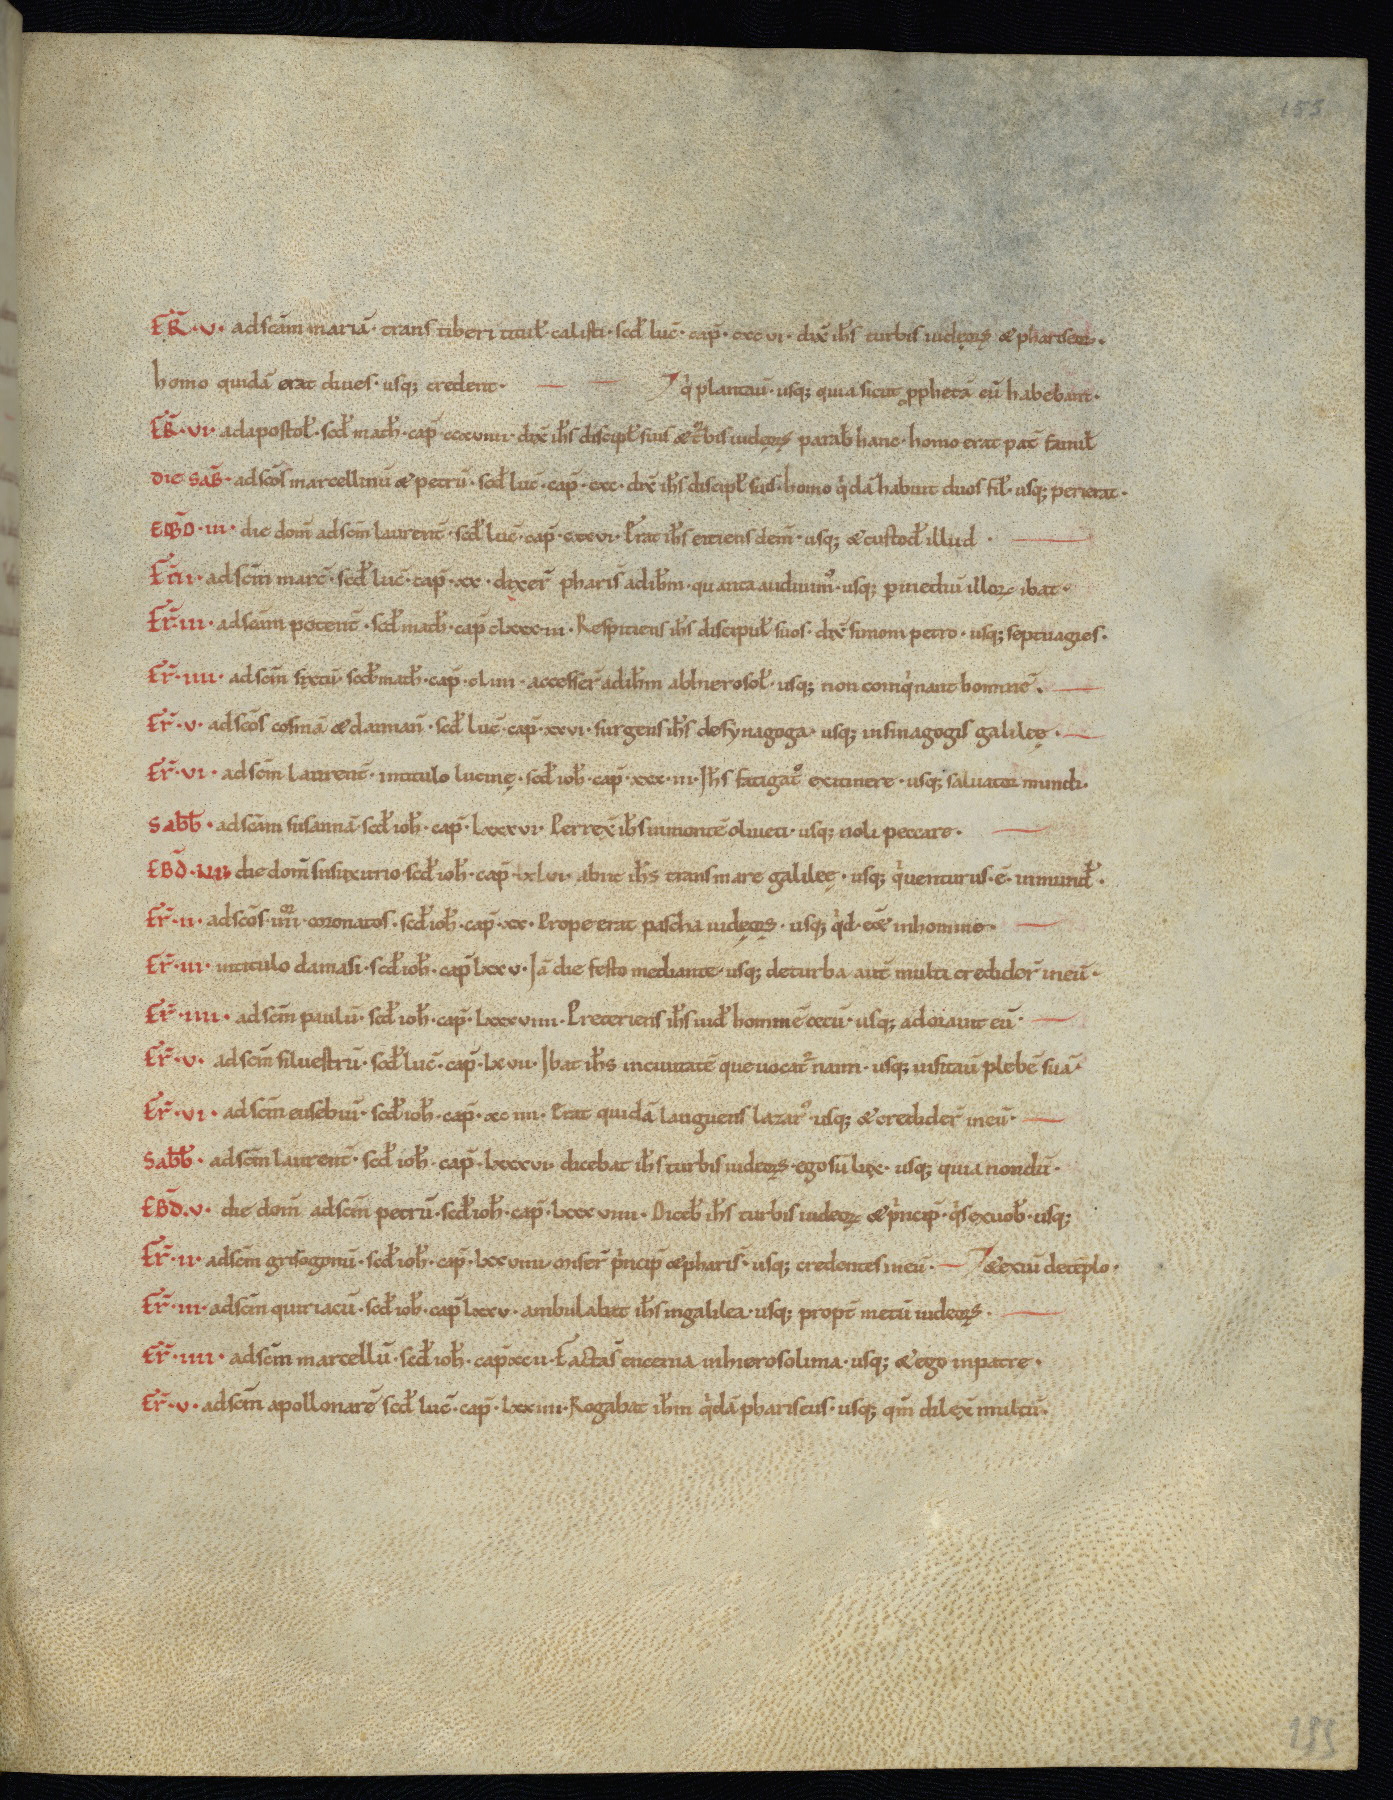 155
FR̄·v· ad scām mariā· trans tiberi titul̄· calisti· scd̄ luc̄· cap̄· cxcvi· dix̄ ih̄s turbis iudęoꝝ & phariseoꝝ·
homo quidā erat diues· usq; credent·
q̇ plantau̅· usq; quia sicut ꝓphetā eū habebant·
FR̄·vi· ad apostol̄· scd̄ math̄· cap̄· ccxviiii· dix̄ ih̄s discipl̄ suis & t̄bis iudęoꝝ parab̄ hanc· homo erat pat̄ famil̄
DIE SAB̄· ad scōs marcellinū & petrū· scd̄ luc̄· cap̄· cxc· dix̄ ih̄s discipl̄ suis· homo q̇dā habuit duos fil̄· usq; perierat·
EBD̄·iii· die dom̄ ad scm̄ laurent̄· scd̄ luc̄· cap̄· cxxvi· Erat ih̄s eiciens dem̄· usq; & custod̄ illud·
Fr̄·ii· ad scm̄ marc̄· scd̄ luc̄· cap̄· xx· dixer̄ pharis̄ ad ih̄m· quanta audiuim̓· usq; p̱ mediū illoꝝ ibat·
Fr̄·iii· ad scām potent̄· scd̄ math̄· cap̄ clxxxiii· Respiciens ih̄s discipul̄ suos· dix̄ simoni petro· usq; septuagies·
Fr̄·iiii· ad scm̄ sixtū· scd̄ math̄· cap̄· cliiii· accesser̄ ad ih̄m ab hierosol̄· usq; non coinq̇nant hominē·
Fr̄·v· ad scōs cosmā & damian̄· scd̄ luc̄· cap̄· xxvi· surgens ih̄s de synagoga· usq; in sinagogis galileę·
Fr̄·vi· ad scm̄ Laurent̄· in titulo lucinę· scd̄ ioh̄· cap̄· xxxiii· Ih̄s fatigat̓ ex itinere· usq; saluator mundi·
Sabb̄· ad scām susannā· scd̄ ioh̄· cap̄· lxxxvi· Perrex̄ ih̄s in montē oliueti· usq; noli peccare·
EBD̄·iiii· die dom̄ in suxurio· scd̄ ioh̄· cap̄· xlvi· abiit ih̄s trans mare galileę· usq; q̇ uenturus· ē· in mund̄·
Fr̄·ii· ad scōs· iiii̅oꝝ· coronatos· scd̄ ioh̄· cap̄· xx· Prope erat pascha iudęoꝝ· usq; q̇d· eēt in homine
Fr̄·iii· in titulo damasi· scd̄ ioh̄· cap̄ lxxv· Iā die festo mediante· usq; de turba aut̄ multi credider̄ in eū·
Fr̄·iiii· ad scm̄ paulū· scd̄ ioh̄· cap̄· lxxxviiii· Preteriens ih̄s uid̄ hominē cecū· usq; adorauit eū·
Fr̄·v· ad scm̄ siluestrū· scd̄ luc̄· cap̄· lxvii· Ibat ih̄s in ciuitatē que uocat̄ naim· usq; uisitau̅ plebē suā·
Fr̄·vi· ad scm̄ eusebiū· scd̄ ioh̄· cap̄· xciiii· Erat quidā languens lazar̓· usq; & credider̄ in eū·
Sabb̄· ad scm̄ laurent̄· scd̄ ioh̄· cap̄· lxxxvi· dicebat ih̄s turbis iudeoꝝ· ego sū lux· usq; quia nondū·
EBD̄·v· die dom̄ ad scm̄ petrū· scd̄ ioh̄· cap̄· lxxxviiii· Diceb̄ ih̄s turbis iudeoꝝ & pṙncip̄· q̇s ex uob̄· usq;
Fr̄·ii· ad scm̄ grisogonū· scd̄ ioh̄· cap̄· lxxviiii· miser̄ pṙncip̄ & pharis̄· usq; credentes in eū·
& exiu̅ de tēplo·
Fr̄·iii· ad scm̄ quiriacū· scd̄ ioh̄· cap̄ lxxv· ambulabat ih̄s in galilea· usq; propt̄ metū iudeoꝝ·
Fr̄·iiii· ad scm̄ marcellū· scd̄ ioh̄· cap̄ xcii· Facta s̄ encenia in hierosolima· usq; & ego in patre·
Fr̄·v· ad scm̄ apollonarē scd̄ luc̄· cap̄· lxxiiii· Rogabat ih̄m q̇dā phariseus· usq; qm̄ dilex̄ multū·
155